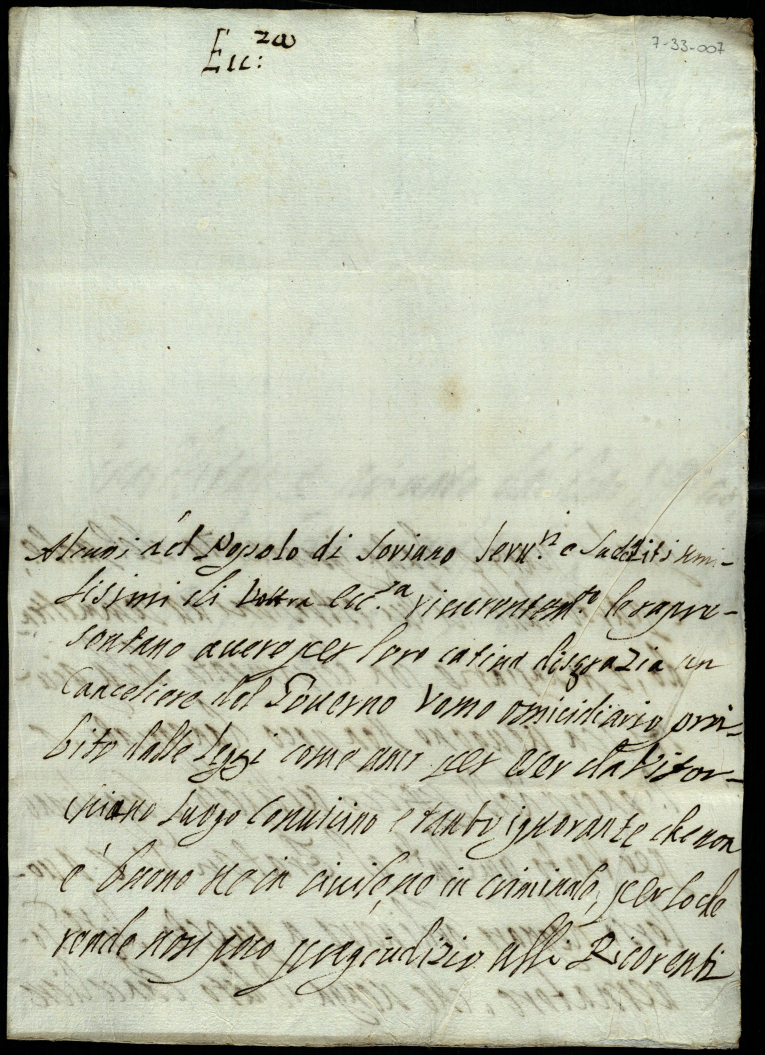 7-33-007
Ecc:za
Alcuni del Popolo di Soriano Serv.ri e Sudditi umi-
lissimi di Vostra Ecc.za riverentem.te le rapre-
sentano avere per loro cativa disgrazia un
Canceliere del Governo Uomo omicidiario, proi-
bito dalle leggi come anco per eser da Vitor-
chiano luogo Convicino e tanto ignorante che non
è buono ne in civile, ne in criminale, per lo che
rende non poco pregiudizio alli Ricorenti